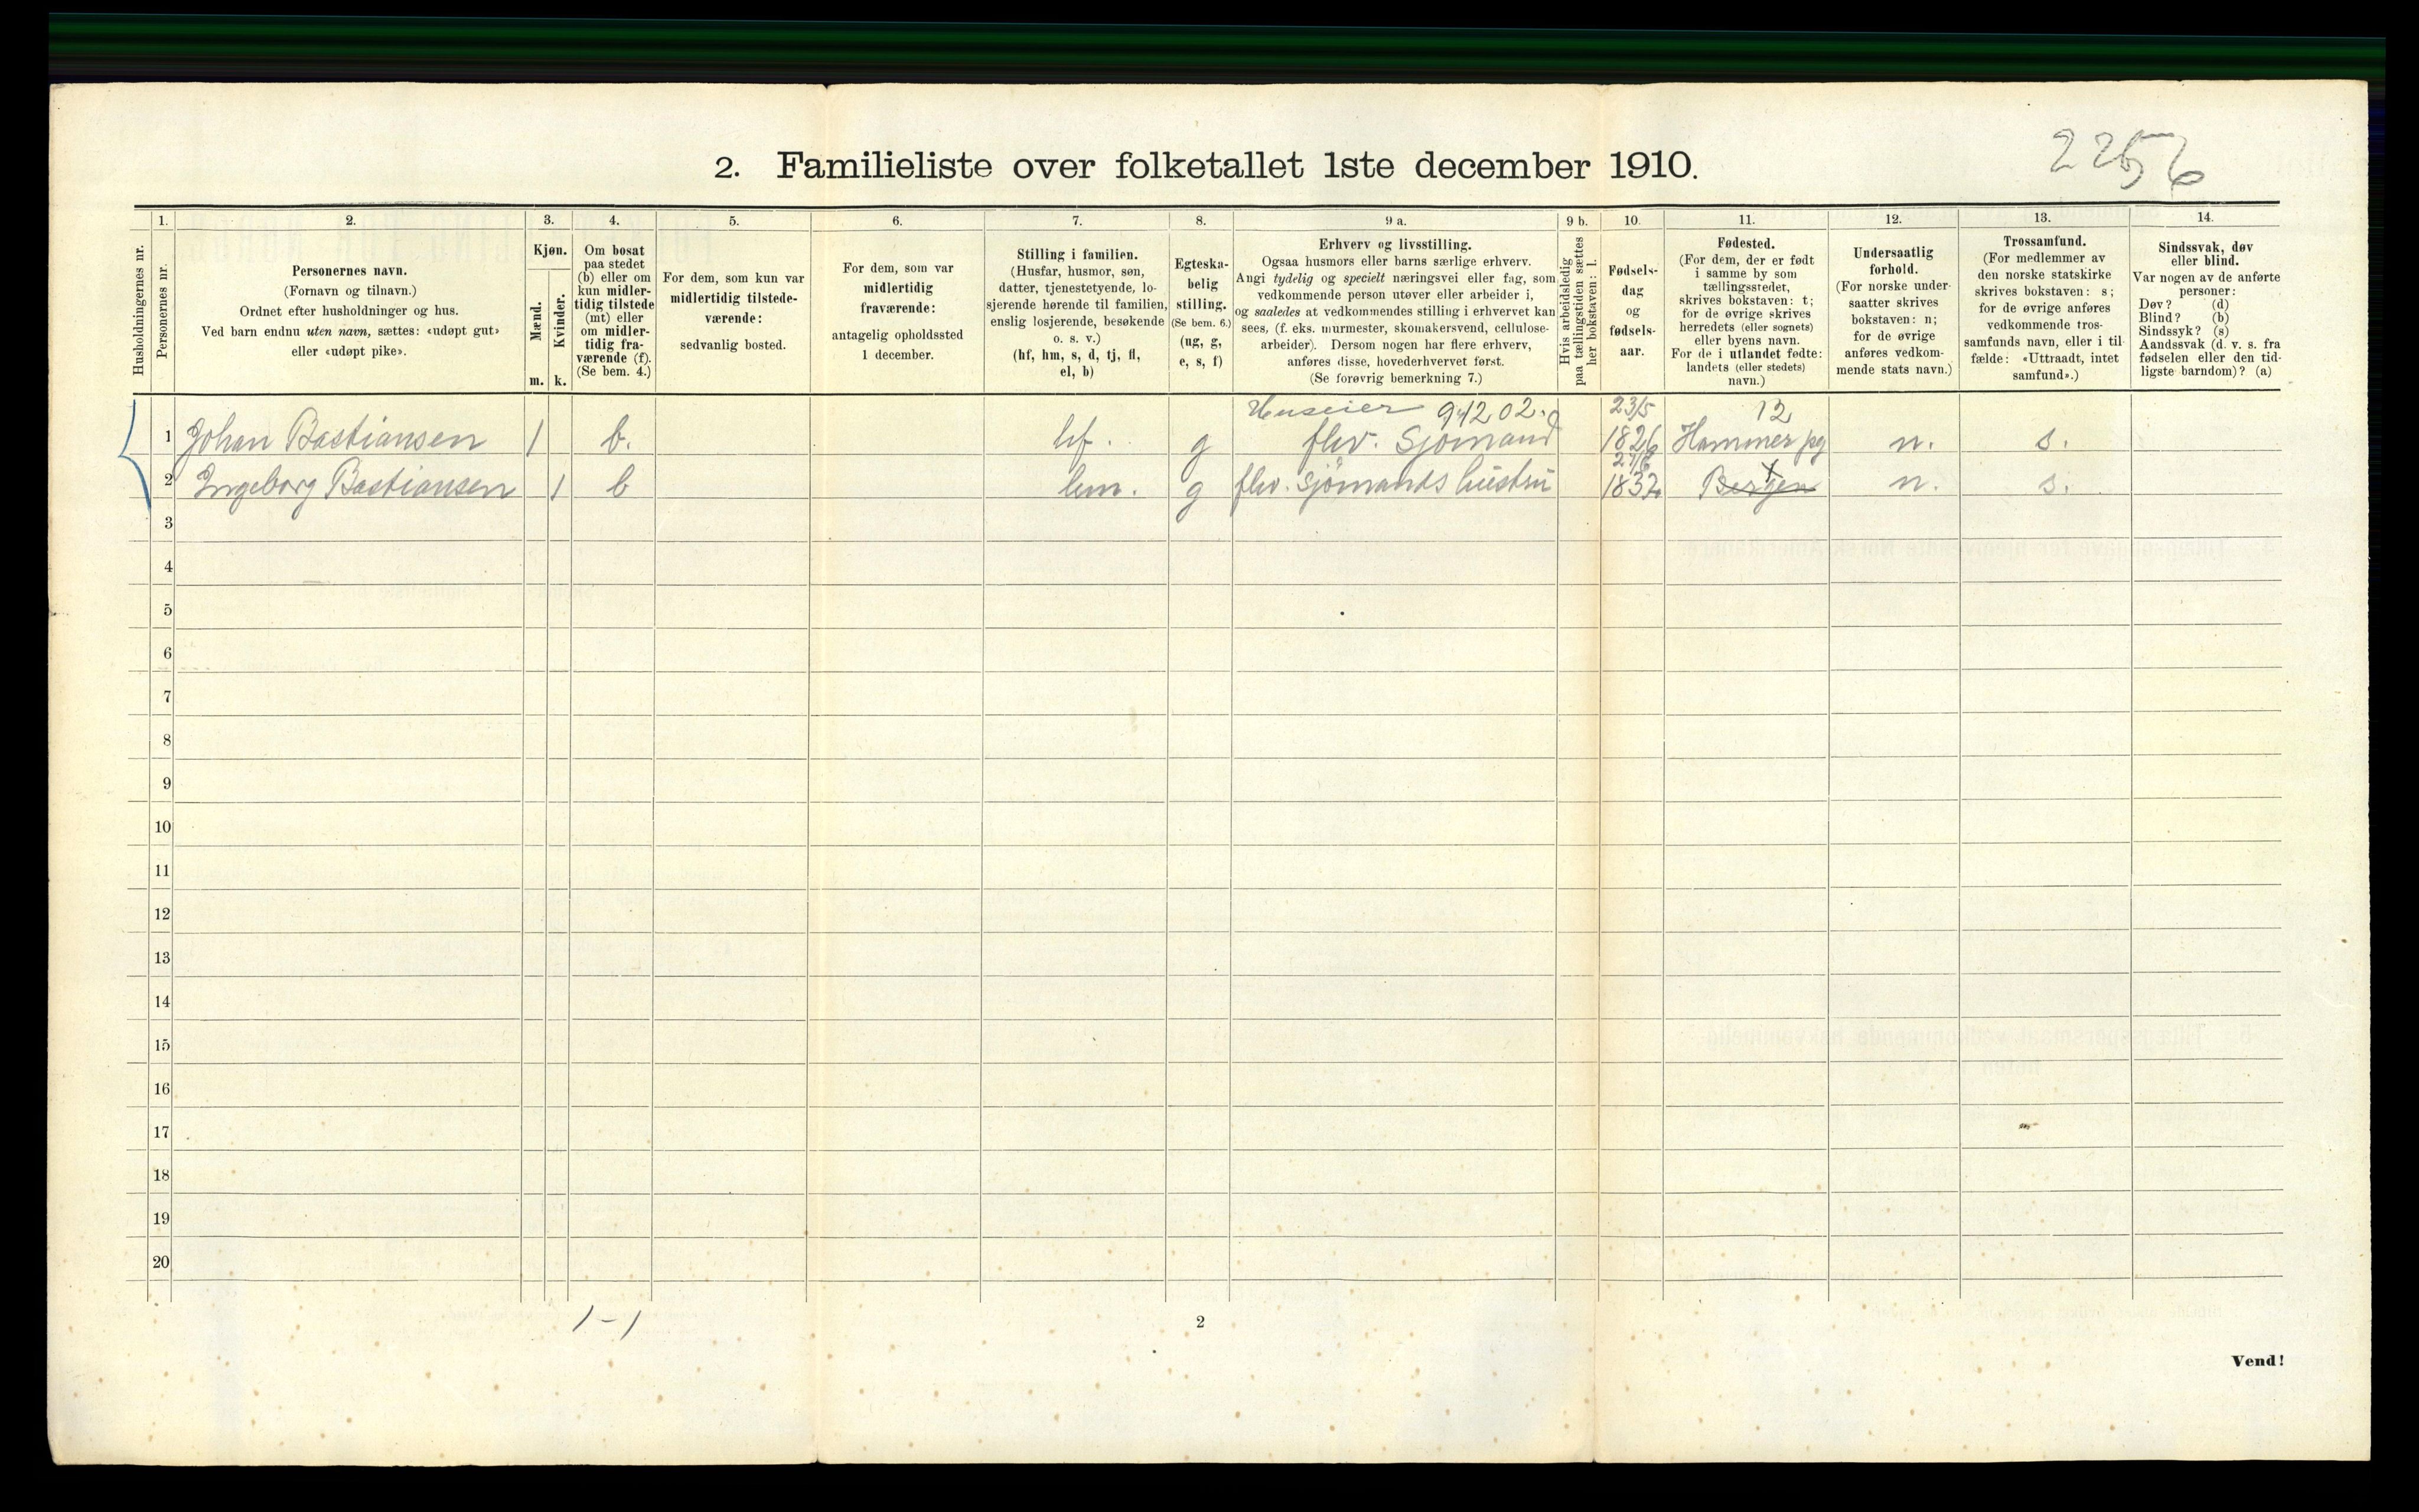 2. Familieliste over folketallet 1ste december 1910.
2256
Husholdningernes nr.
1.
Personernes nr.
2.
Personernes navn.
(Fornavn og tilnavn.)
Ordnet efter husholdninger og hus.
Ved barn endnu uten navn, sættes: «udøpt gut»
eller «udøpt pike».
3.
Kjøn.
Mænd.
Kvinder.
m. k.
4.
Om bosat
paa stedet
(b) eller om
kun midler-
tidig tilstede
(mt) eller
om midler-
tidig fra-
værende (f).
(Se bem. 4.)
5.
For dem, som kun var
midlertidig tilstede-
værende:
sedvanlig bosted.
6.
For dem, som var
midlertidig
fraværende:
antagelig opholdssted
1 december.
7.
Stilling i familien.
(Husfar, husmor, søn,
datter, tjenestetyende, lo-
sjerende hørende til familien,
enslig losjerende, besøkende
o. s. v.)
(hf, hm, s, d, tj, fl,
el, b)
8.
Egteska-
belig
stilling.
(Se bem. 6.)
(ug, g,
e, s, f)
9 a.
Erhverv og livsstilling.
Ogsaa husmors eller barns særlige erhverv.
Angi tydelig og specielt næringsvei eller fag, som
vedkommende person utøver eller arbeider i,
og saaledes at vedkommendes stilling i erhvervet kan
sees, (f. eks. murmester, skomakersvend, cellulose-
arbeider). Dersom nogen har flere erhverv,
anføres disse, hovederhvervet først.
(Se forøvrig bemerkning 7.)
9 b.
Hvis arbeidsledig
paa tællingstiden sættes
her bokstaven: l.
10.
Fødsels-
dag
og
fødsels-
aar.
11.
Fødested.
(For dem, der er født
i samme by som
tællingsstedet,
skrives bokstaven: t;
for de øvrige skrives
herredets (eller sognets)
eller byens navn.
For de i utlandet fødte:
landets (eller stedets)
navn.)
12.
Undersaatlig
forhold.
(For norske under-
saatter skrives
bokstaven: n;
for de øvrige
anføres vedkom-
mende stats navn.)
13.
Trossamfund.
(For medlemmer av
den norske statskirke
skrives bokstaven: s;
for de øvrige anføres
vedkommende tros-
samfunds navn, eller i til-
fælde: «Uttraadt, intet
samfund».)
14.
Sindssvak, døv
eller blind.
Var nogen av de anførte
personer:
Døv? (d)
Blind? (b)
Sindssyk? (s)
Aandssvak (d. v. s. fra
fødselen eller den tid-
ligste barndom)? (a)
Huseier 9,1202. 23/5 12
1 Johan Bastiansen 1 b. hf. g fhv. Sjømand 1826 Hammer pg n. s.
2 Ingeborg Bastiansen 1 b hm. g fhv. Sjömands hustru 1832 Bergen t n. s.
3
4
5
6
7
8
9
10
11
12
13
14
15
16
17
18
19
20
1-1
2
Vend!